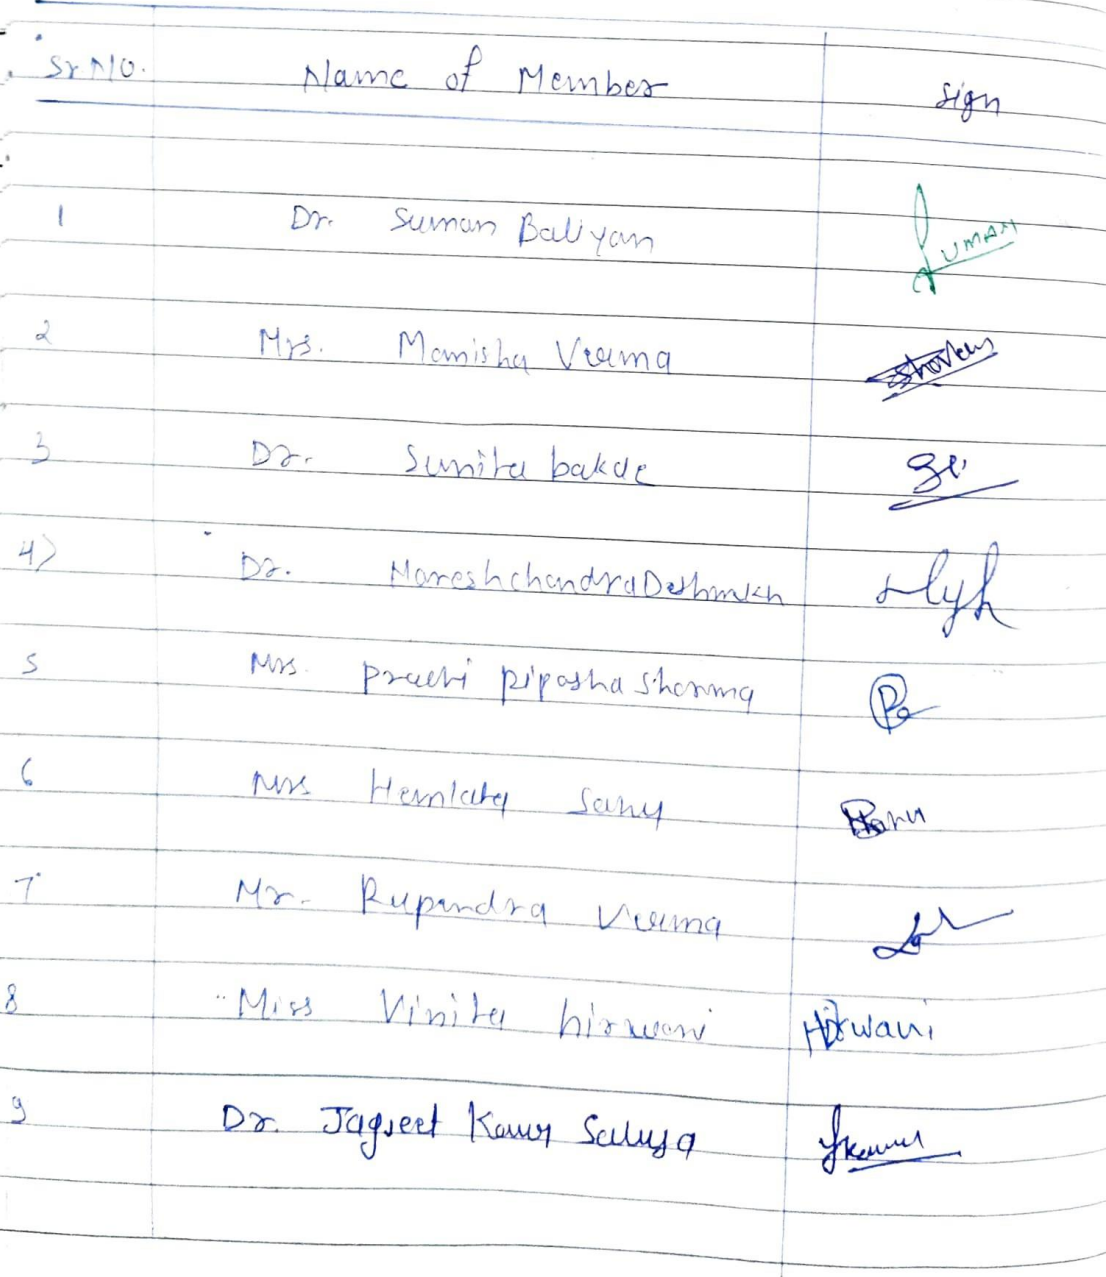 Sr No. Name of Member Sign
1 Dr. Suman Baliyan SUMAN
2 Mrs. Manisha Verma
3 Dr. Sunita bakde
4) Dr. Nareshchandra Deshmukh
5 Mrs. Prachi Pipasha Sharma
6 Mrs Hemlata Sahu
7 Mr. Rupendra Verma
8 Miss Vinita hirwani Hirwani
9 Dr. Jagjeet Kaur Saluja Jkaur